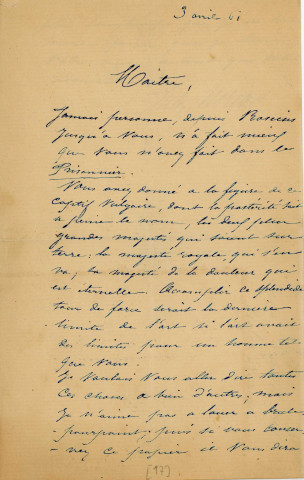 3 avril 61
Maître,
Jamais personne, depuis Roscius
jusqu'à Vous, n'a fait mieux
que Vous n'avez fait dans le
Prisonnier.
Vous avez donné à la figure de ce
Captif Vulgaire, dont la postérité sait
à peine le nom, les deux plus
grandes majestés qui soient sur
terre: la majesté royale, qui s'en
va; la majesté de la douleur qui
est éternelle. Accomplir ce splendide
tour de force serait la dernière
limite de l'art si l'art avait
des limites pour un homme tel
que Vous.
Je voulais Vous aller dire toutes
ces choses & bien d'autres; mais
Je n'aime pas à louer à brule-
-pourpoint; puis si vous conser-
-vez ce papier il Vous dira
[17]